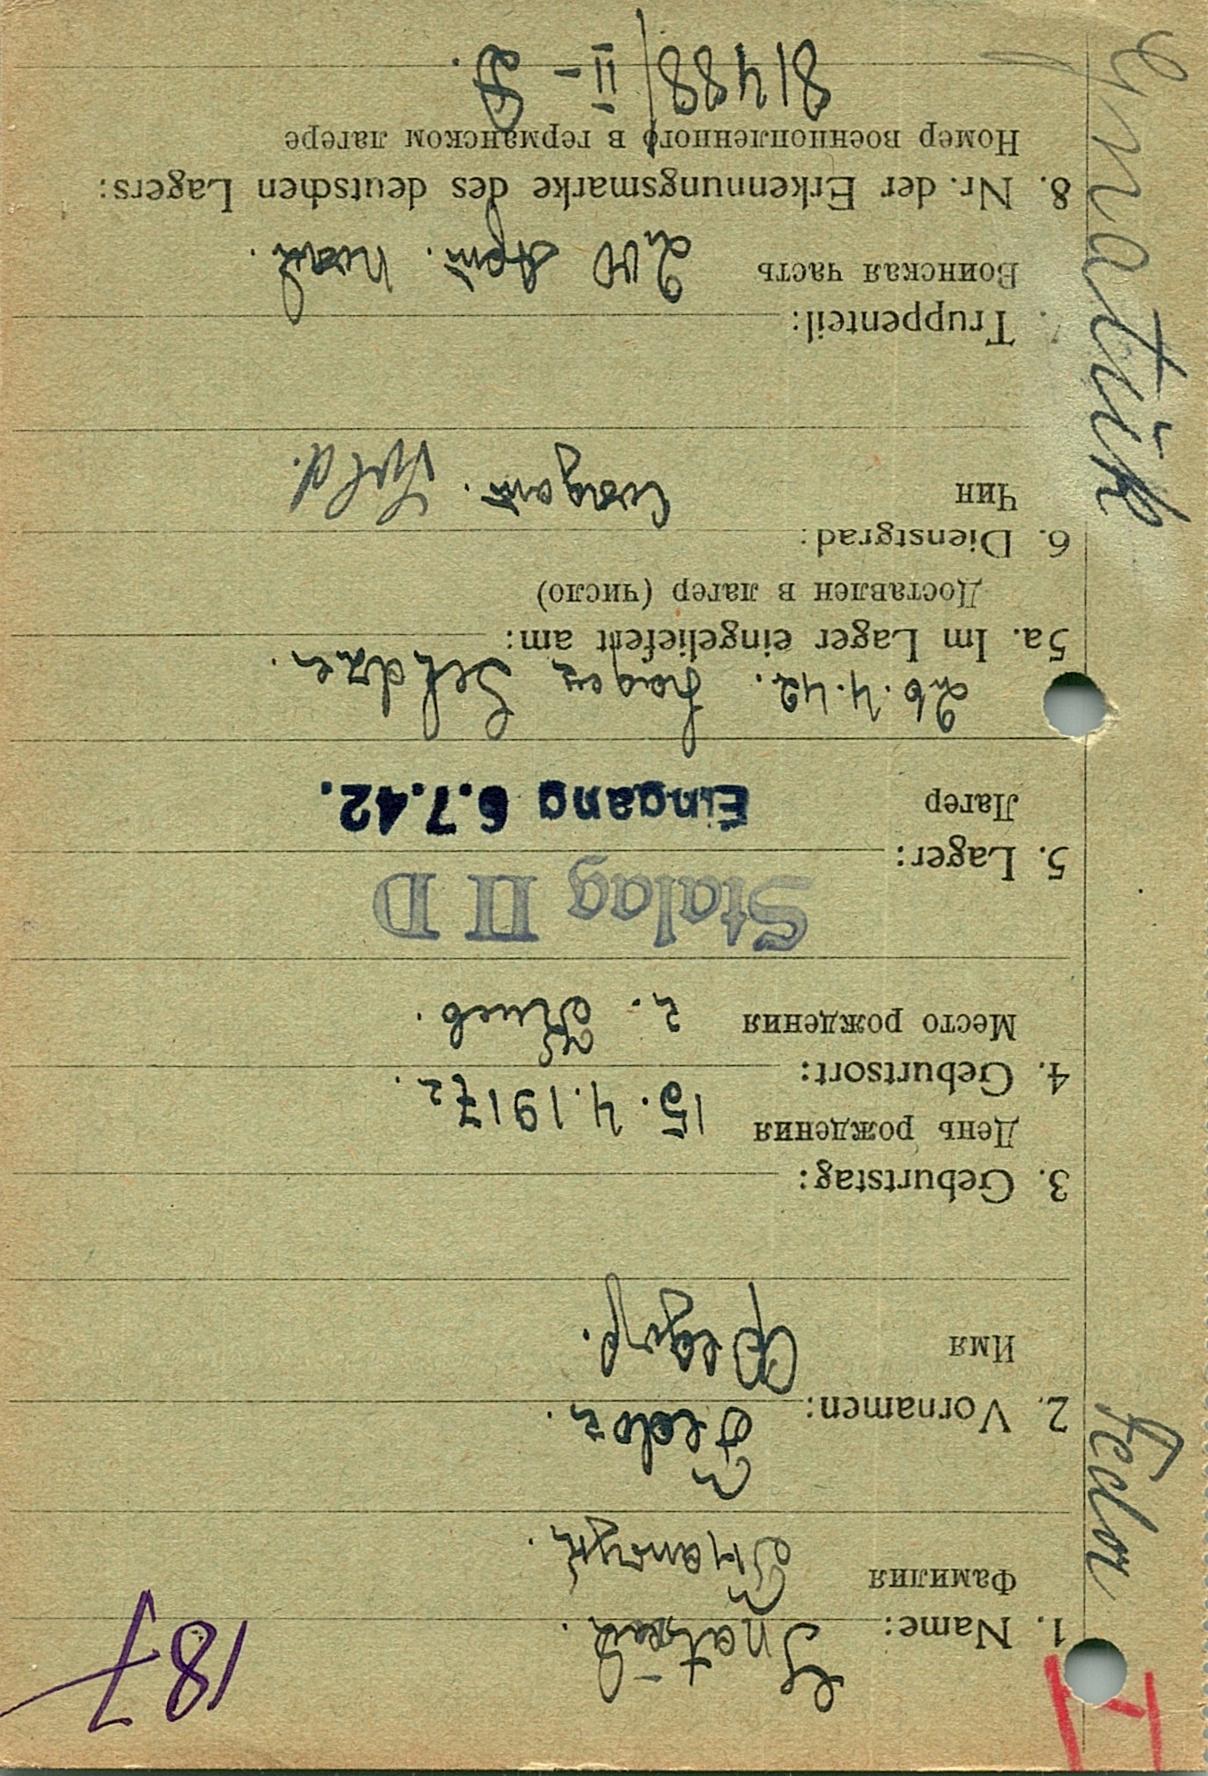 187
1. Name: Gnatük.
Фамилия Гнатук.
2. Vornamen: Fedor.
Имя Федор.
3. Geburtstag:
День рождения 15.4.1917 г.
4. Geburtsort:
Место рождения г. Киев.
Stalag II D
5. Lager:
Лагер Eingang 6.7.42.
26.4.42. Lager
5a. Im Lager eingeliefert am:
Доставлен в лагер (число)
6. Dienstgrad:
Чин Солдат. Sold.
Truppenteil:
Воинская часть 240 Арт. полк.
8. Nr. der Erkennungsmarke des deutschen Lagers:
Номер военнопленного в германском лагере
81488/II-B.
Fedor
Gnatük